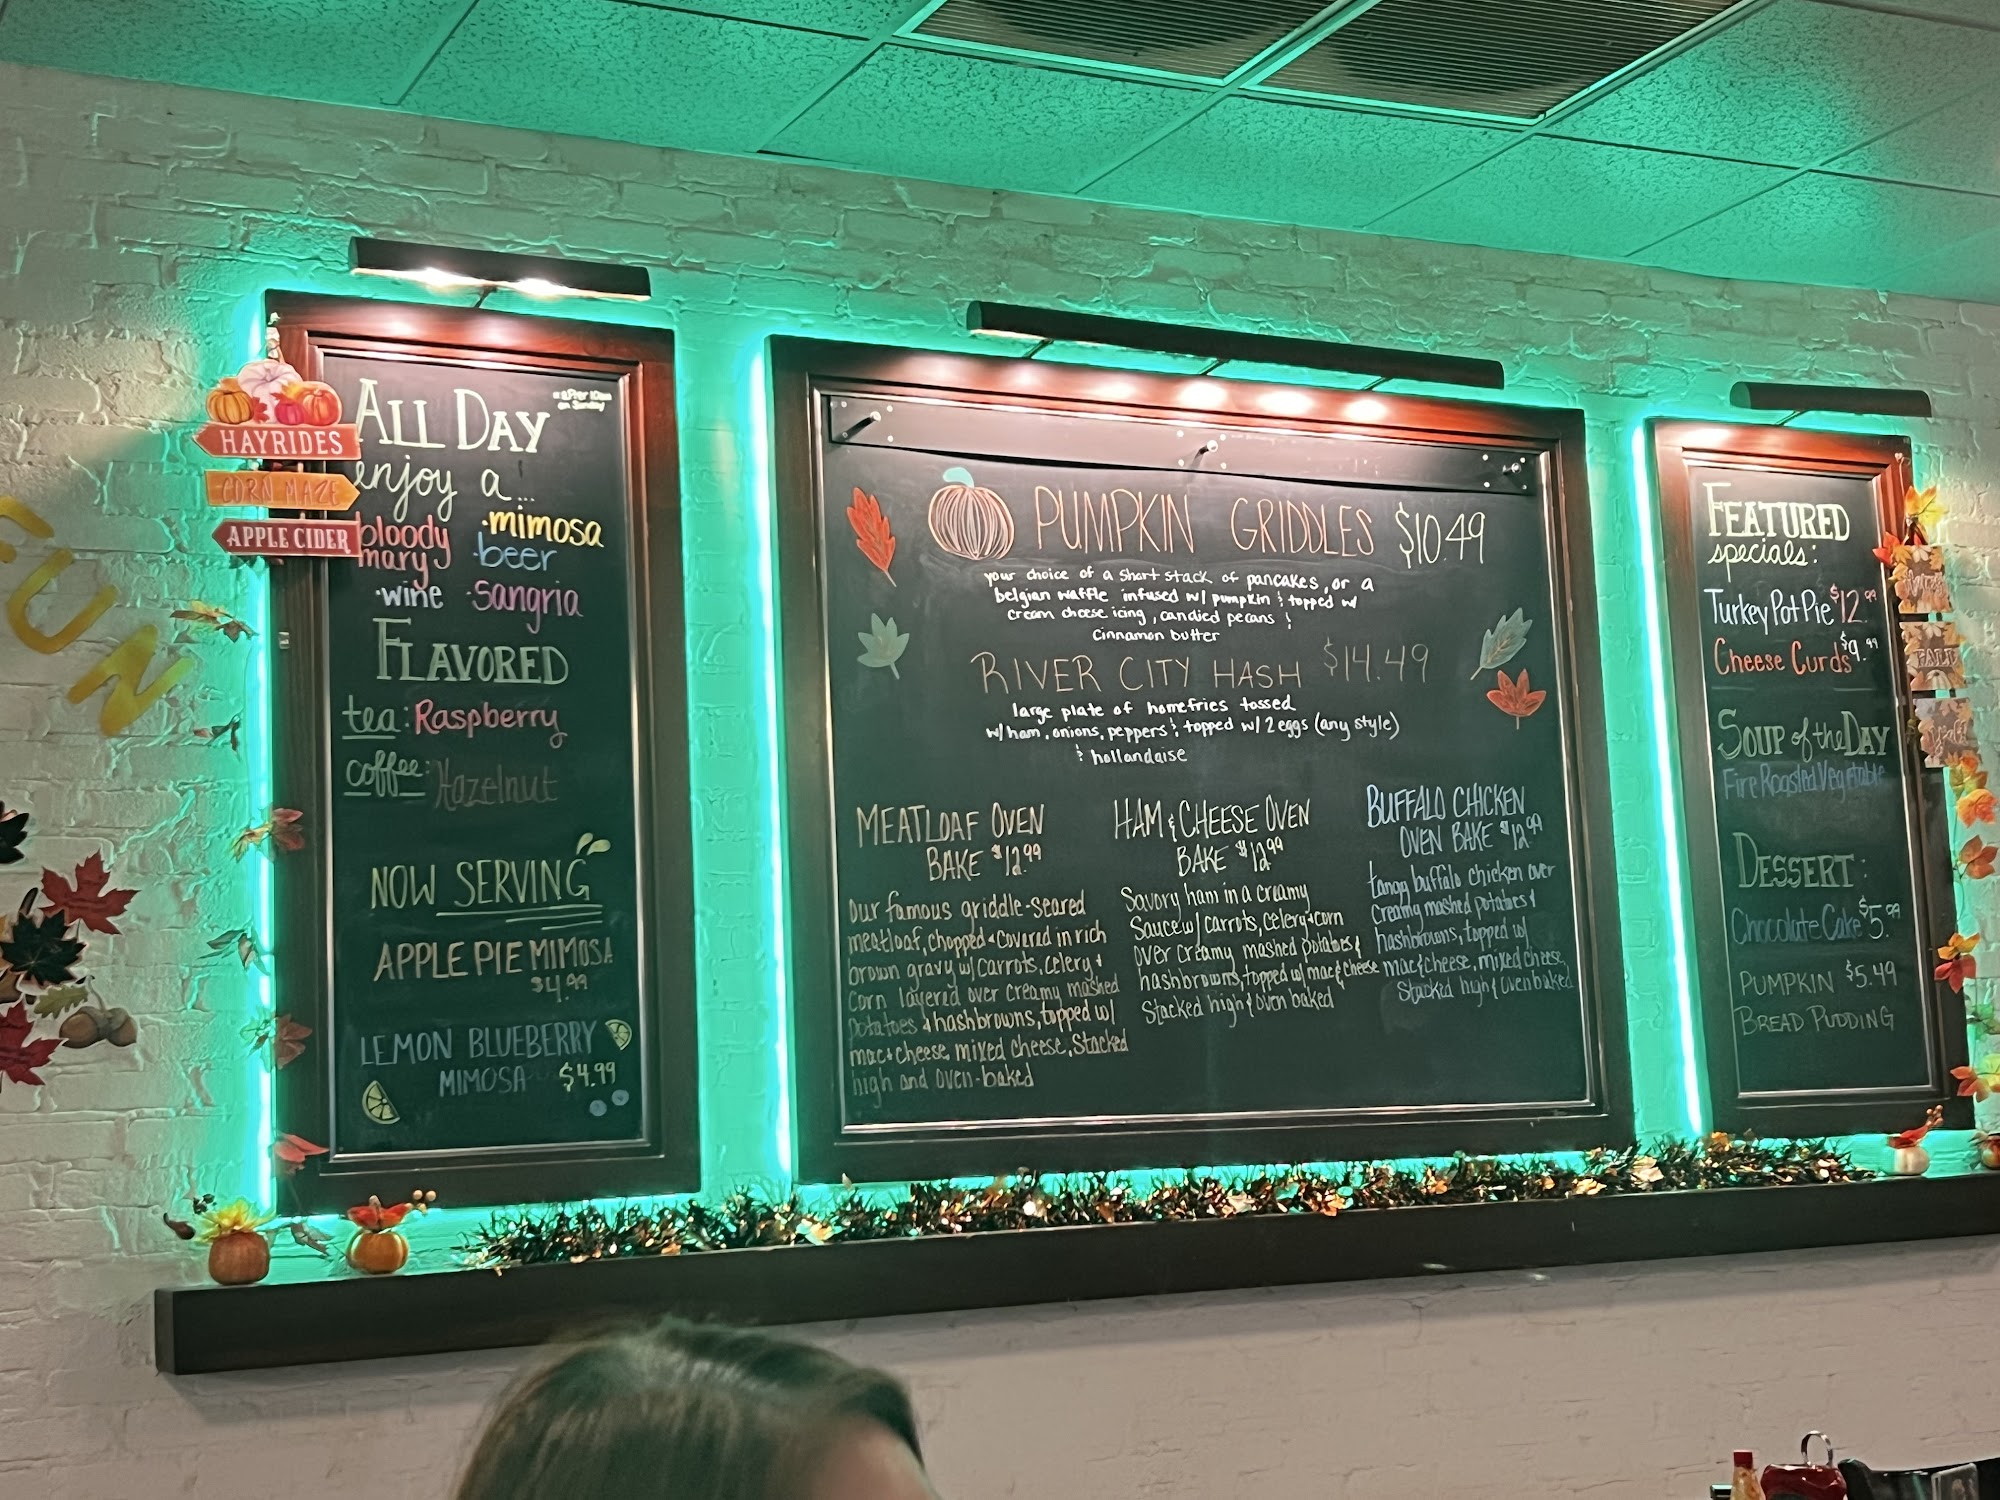 FUN
HAYRIDES
CORN MAZE
APPLE CIDER
ALL DAY
*after 10am
on Sunday
enjoy a...
bloody
mary
·mimosa
·beer
·wine ·Sangria
FLAVORED
tea: Raspberry
coffee: Hazelnut
NOW SERVING
APPLE PIE MIMOSA
$4.99
LEMON BLUEBERRY
MIMOSA $4.99
PUMPKIN GRIDDLES $10.49
your choice of a short stack of pancakes, or a
belgian waffle infused w/ pumpkin & topped w/
cream cheese icing, candied pecans &
cinnamon butter
RIVER CITY HASH $14.49
large plate of homefries tossed
w/ ham, onions, peppers & topped w/ 2 eggs (any style)
& hollandaise
MEATLOAF OVEN
BAKE $12.99
Our famous griddle-seared
meatloaf, chopped & covered in rich
brown gravy w/ carrots, celery &
corn layered over creamy mashed
potatoes & hashbrowns, topped w/
mac & cheese, mixed cheese, Stacked
high and oven-baked
HAM & CHEESE OVEN
BAKE $12.99
Savory ham in a creamy
Sauce w/ carrots, celery & corn
over creamy mashed potatoes &
hashbrowns, topped w/ mac & cheese
Stacked high & oven baked
BUFFALO CHICKEN
OVEN BAKE $12.99
tangy buffalo chicken over
creamy mashed potatoes &
hashbrowns, topped w/
mac & cheese, mixed cheese,
Stacked high & oven baked
FEATURED
specials:
Turkey Pot Pie $12.99
Cheese Curds $9.99
SOUP of the DAY
Fire Roasted Vegetable
DESSERT:
Chocolate Cake $5.99
PUMPKIN $5.49
BREAD PUDDING
FALL